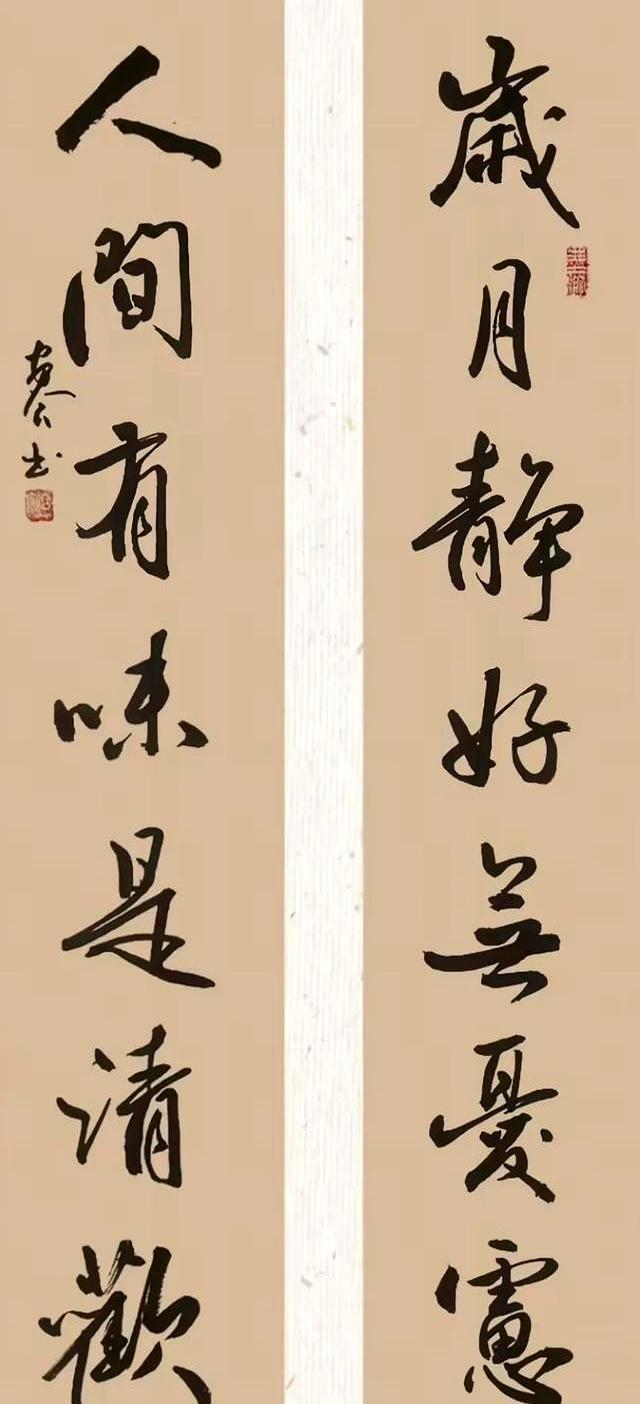 歲月靜好無憂慮
人間有味是清歡